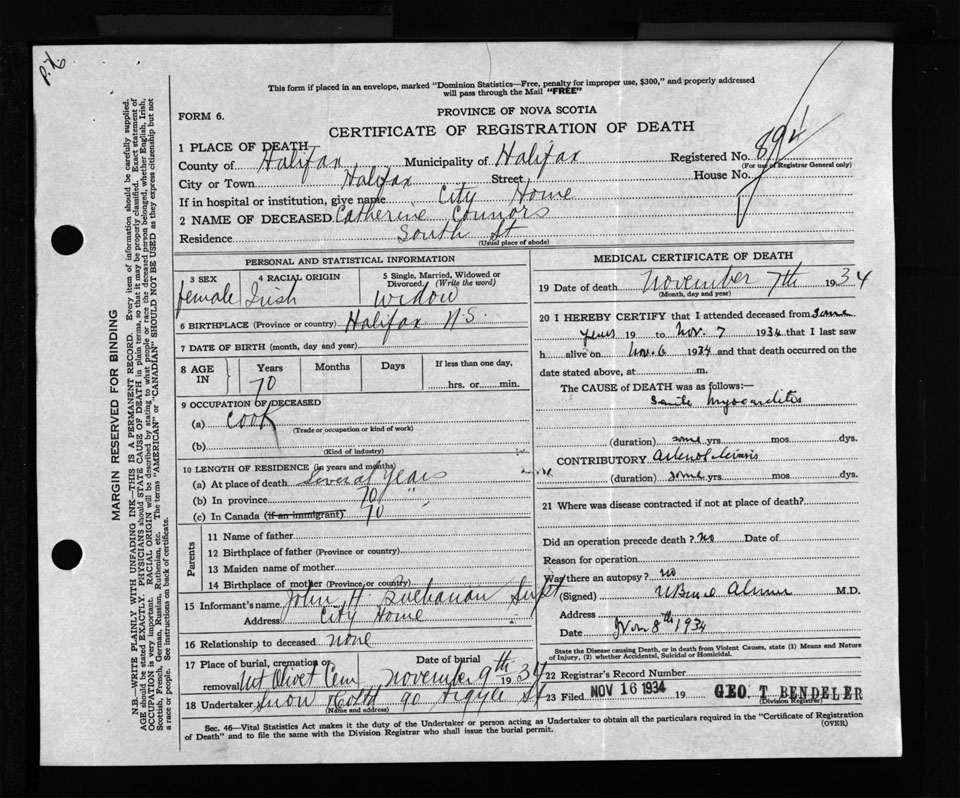 P.X6
This form if placed in an envelope, marked "Dominion Statistics—Free, penalty for improper use, $300," and properly addressed
will pass through the Mail "FREE"
PROVINCE OF NOVA SCOTIA
FORM 6.
CERTIFICATE OF REGISTRATION OF DEATH
1 PLACE OF DEATH
County of Halifax Municipality of Halifax Registered No. 894
(For use of Registrar General only)
City or Town Halifax Street House No.
If in hospital or institution, give name City Home
2 NAME OF DECEASED Catherine Connors
Residence South St
(Usual place of abode)
PERSONAL AND STATISTICAL INFORMATION
3 SEX 4 RACIAL ORIGIN 5 Single, Married, Widowed or Divorced. (Write the word)
female Irish Widow
6 BIRTHPLACE (Province or country) Halifax N.S.
7 DATE OF BIRTH (month, day and year)
8 AGE IN Years Months Days If less than one day,
70 hrs. or min.
9 OCCUPATION OF DECEASED
(a) Cook
(Trade or occupation or kind of work)
(b)
(Kind of industry)
10 LENGTH OF RESIDENCE (in years and months)
(a) At place of death Several Years
(b) In province 70 "
(c) In Canada (if an immigrant) 70
Parents
11 Name of father
12 Birthplace of father (Province or country)
13 Maiden name of mother
14 Birthplace of mother (Province or country)
15 Informant's name John H. Buchanan Supt
Address City Home
16 Relationship to deceased none
17 Place of burial, cremation or removal Mt Olivet Cem Date of burial November 9th 1934
18 Undertaker Snow 90 Argyle St
(Name and address)
MEDICAL CERTIFICATE OF DEATH
19 Date of death November 7th 1934
(Month, day and year)
20 I HEREBY CERTIFY that I attended deceased from some
years 19 to Nov. 7 1934 that I last saw
h alive on Nov. 6 1934 and that death occurred on the
date stated above, at m.
The CAUSE OF DEATH was as follows:—
Senile Myocarditis
(duration) some yrs mos. dys.
CONTRIBUTORY Arteriosclerosis
(duration) some yrs mos. dys.
21 Where was disease contracted if not at place of death?
Did an operation precede death? no Date of
Reason for operation
Was there an autopsy? no
(Signed) M.D.
Address
Date Nov 8th 1934
State the Disease causing Death, or in death from Violent Causes, state (1) Means and Nature
of Injury, (2) whether Accidental, Suicidal or Homicidal.
22 Registrar's Record Number
23 Filed NOV 16 1934 19 GEO. T BENDELER
(Division Registrar)
Sec. 46—Vital Statistics Act makes it the duty of the Undertaker or person acting as Undertaker to obtain all the particulars required in the "Certificate of Registration
of Death" and to file the same with the Division Registrar who shall issue the burial permit.
(OVER)
MARGIN RESERVED FOR BINDING
N.B.—WRITE PLAINLY WITH UNFADING INK—THIS IS A PERMANENT RECORD. Every item of information should be carefully supplied.
AGE should be stated EXACTLY. PHYSICIANS should STATE CAUSE OF DEATH in plain terms, so that it may be properly classified. Exact statement of
OCCUPATION is very important. RACIAL ORIGIN will be described by stating to what people or race the deceased person belonged, whether English, Irish,
Scottish, French, German, Russian, Ruthenian, etc. The terms "AMERICAN" or "CANADIAN" SHOULD NOT BE USED as they express citizenship but not
a race or people. See instructions on back of certificate.